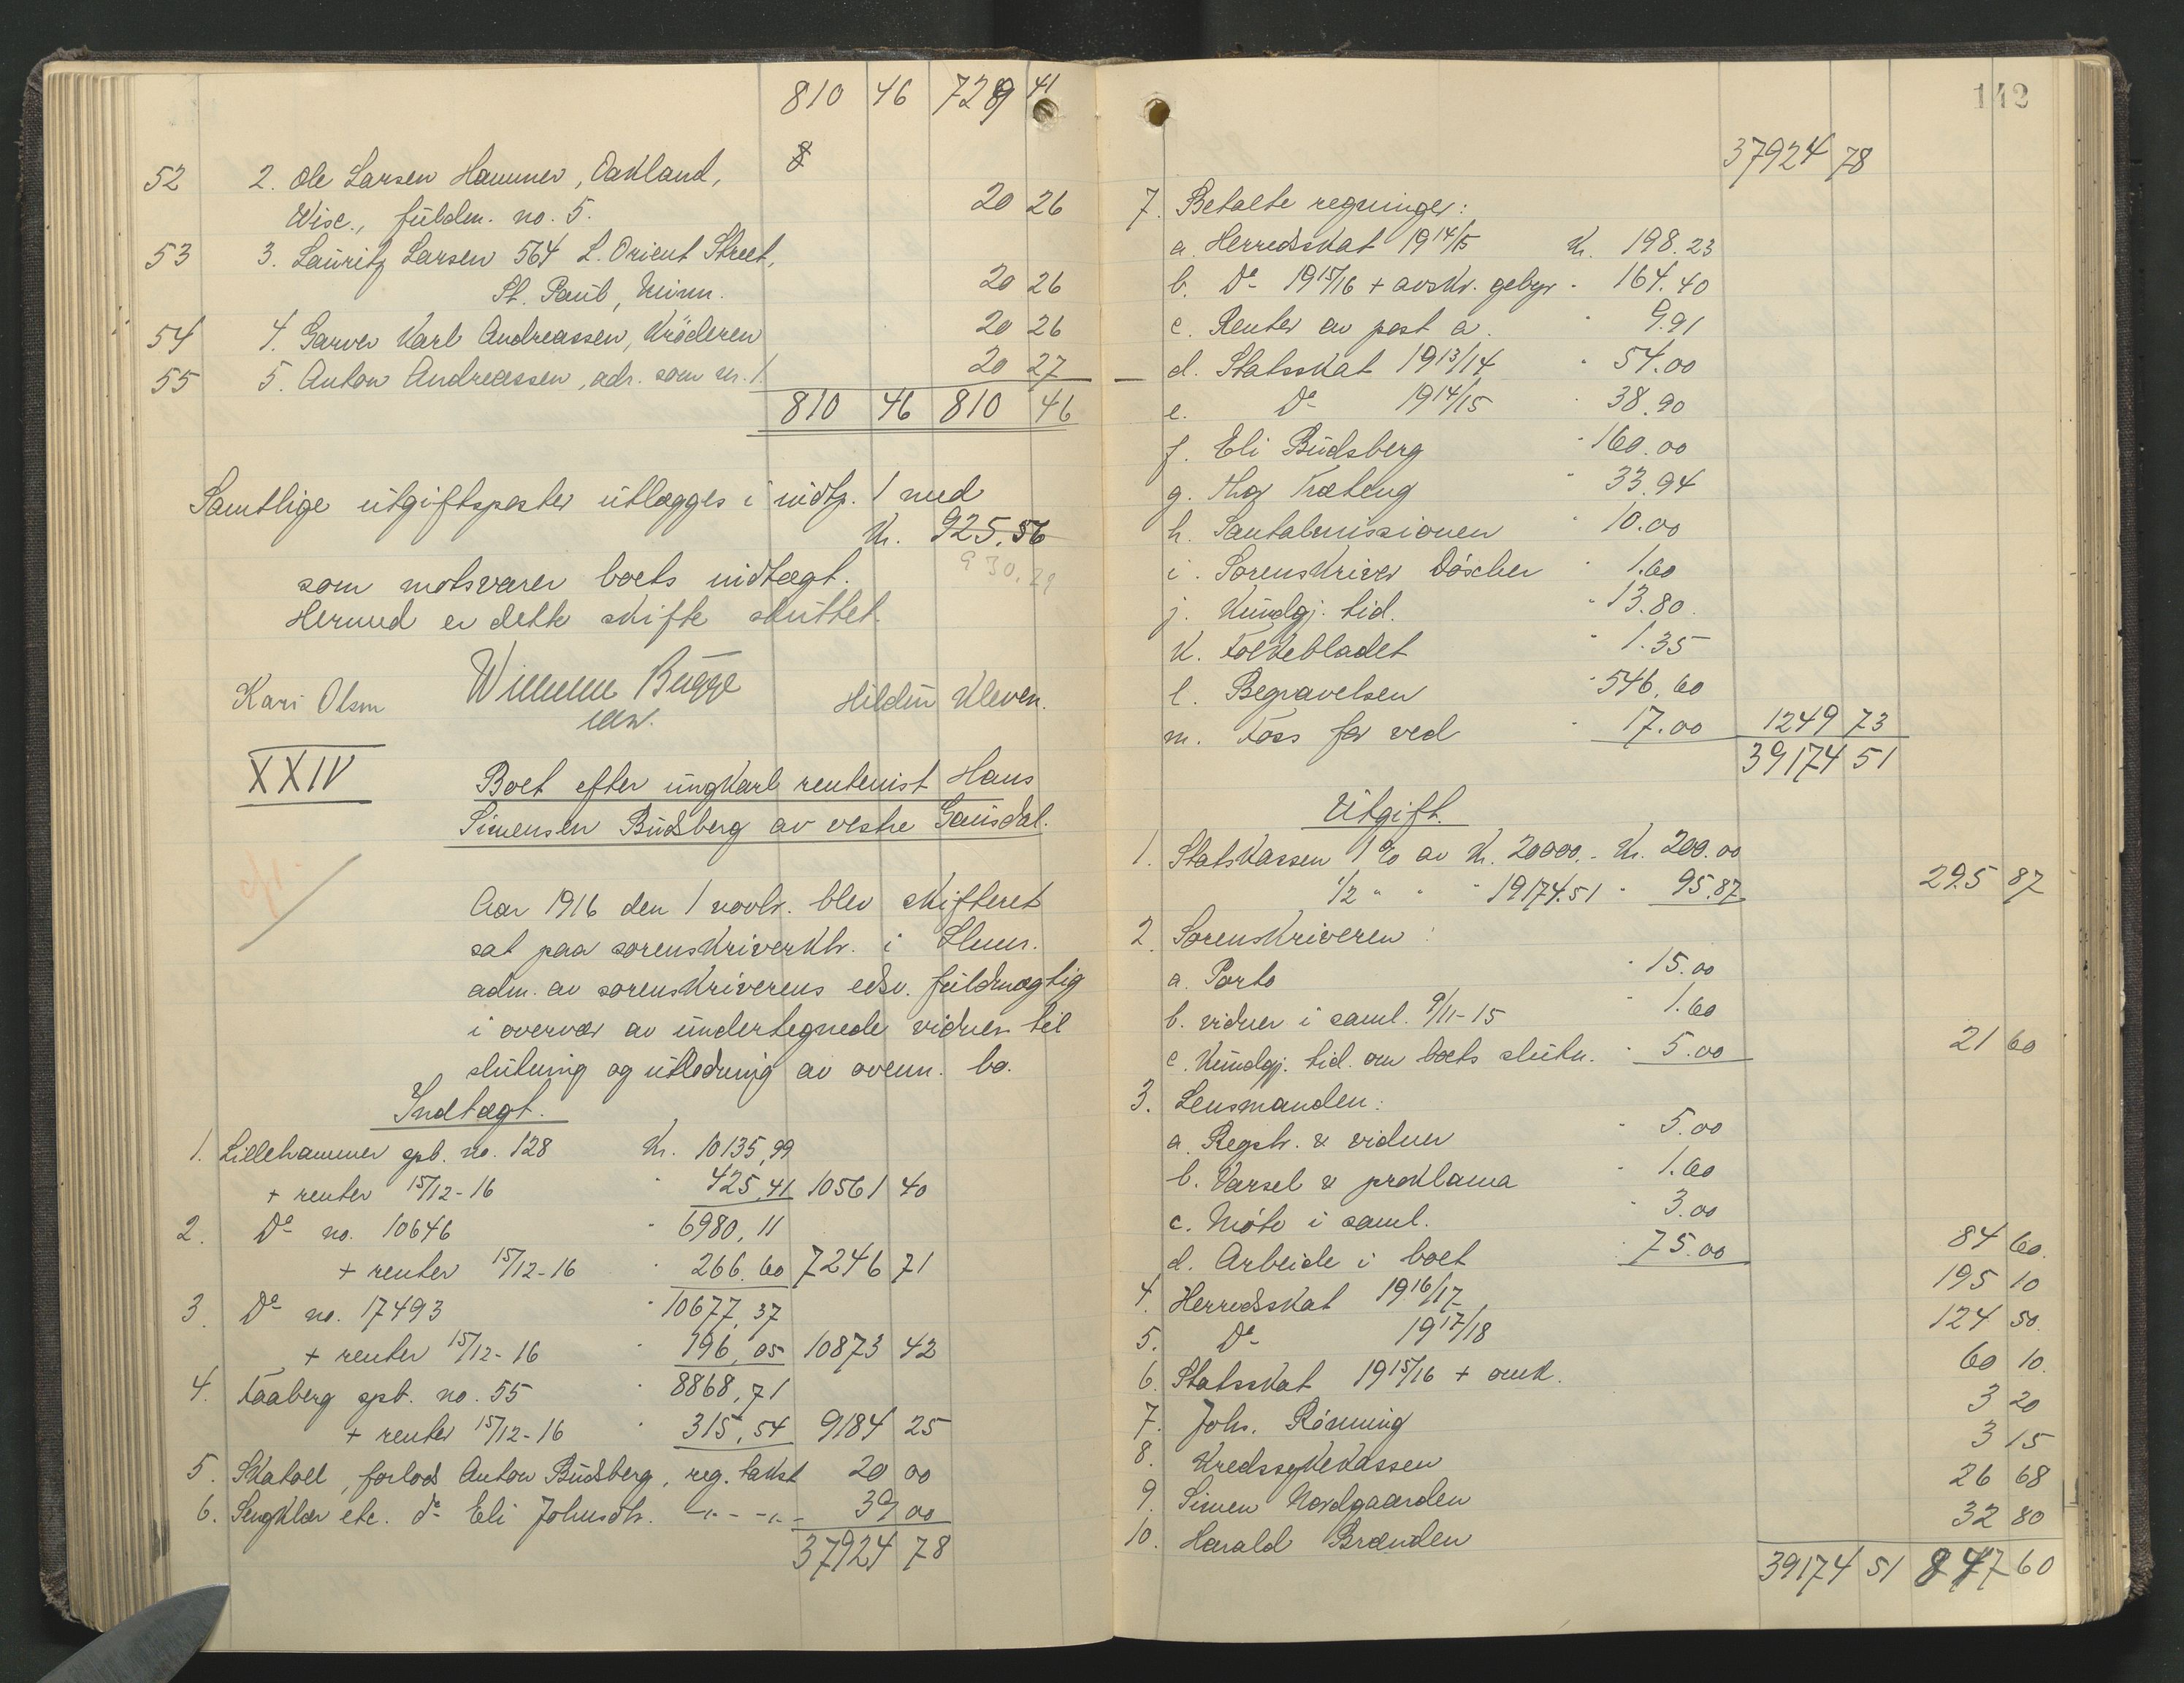 810 46 7289 41
8
52 2. Ole Larsen Hammer, Oakland,
Wisc., fuldm. no. 5. 20 26
53 3. Lauritz Larsen 564 L. Orient Street,
St. Paul, Minn. 20 26
54 4. Garver Karl Andreassen, Kröderen 20 26
55 5. Anton Andreassen, adr. som nr. 1. 20 27
810 46 810 46
Samtlige utgiftsposter utlægges i indtg. 1 med
Kr. 925.56
930.29
som motsvarer boets indtægt.
Hermed er dette skifte sluttet.
Kari Olsen Wilhelm Bugge Hildur Kleven.
edsv.
XXIV
Boet efter ungkarl rentenist Hans
Simensen Budsberg av vestre Gausdal.
Aar 1916 den 1 novbr. blev skifteret
sat paa sorenskriverktr. i Lhmr.
adm. av sorenskriverens edsv. fuldmægtig
i overvær av undertegnede vidner til
slutning og utlodning av ovenn. bo.
Indtægt.
1. Lillehammer spb. no. 128 Kr. 10135,99
+ renter 15/12-16 " 425,41 10561 40
2. Do no. 10646 " 6980,11
+ renter 15/12-16 " 266.60 7246 71
3. Do no. 17493 " 10677,37
+ renter 15/12-16 " 196,05 10873 42
4. Faaberg spb. no. 55 " 8868,71
+ renter 15/12-16 " 315,54 9184 25
5. Skatoll, forlods Anton Budsberg, reg. takst 20 00
6. Sengklær etc. do Eli Johnsdtr. -"- -"- 39 00
37924 78
142
37924 78
7. Betalte regninger:
a. Herredsskat 1914/15 Kr. 198.23
b. Do 1915/16 + avskr. gebyr " 164.40
c. Renter av post a. " 9.91
d. Statsskat 1913/14 " 54.00
e. Do 1914/15 " 38.90
f. Eli Budsberg " 160.00
g. Thor Træteng " 33.94
h. Santalmissionen " 10.00
i. Sorenskriver Döscher " 1.60
j. Kundgj. tid. " 13.80
k. Folkebladet " 1.35
l. Begravelsen " 546.60
m. Foss for ved " 17.00 1249 73
39174 51
Utgift.
1. Statskassen 1 % av Kr. 20000.- Kr. 200.00
1/2 " " " 19174.51 " 95.87 295 87
2. Sorenskriveren:
a. Porto " 15.00
b. vidner i saml. 9/11-15 " 1.60
c. Kundgj. tid. om boets slutn. " 5.00 21 60
3. Lensmanden:
a. Regstr. & vidner " 5.00
b. Varsel & proklama " 1.60
c. Möte i saml. " 3.00
d. Arbeide i boet " 75.00 84 60
4. Herredsskat 1916/17 195 10
5. Do 1917/18 124 50
6. Statsskat 1915/16 + omk. 60 10
7. Johs. Rönning 3 20
8. Kredssykekassen 3 15
9. Simen Nordgaarden 26 68
10. Harald Brænden 32 80
39174 51 847 60